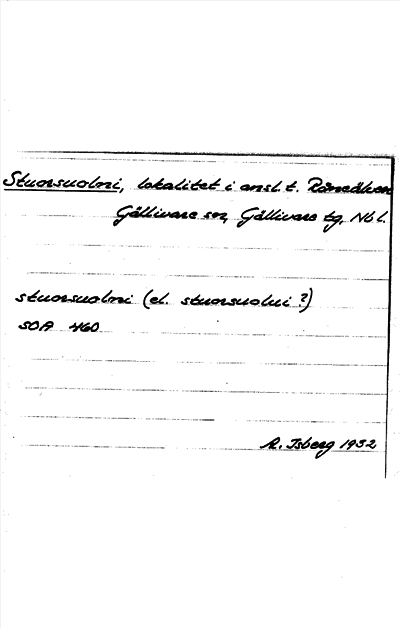 Stuorsuolni, lokalitet i ansl. t. Råneälven
Gällivare sn, Gällivare tg, Nbl.
stuorsuolni (el. stuorsuolui ?)
SOA 460
R. Isberg 1932